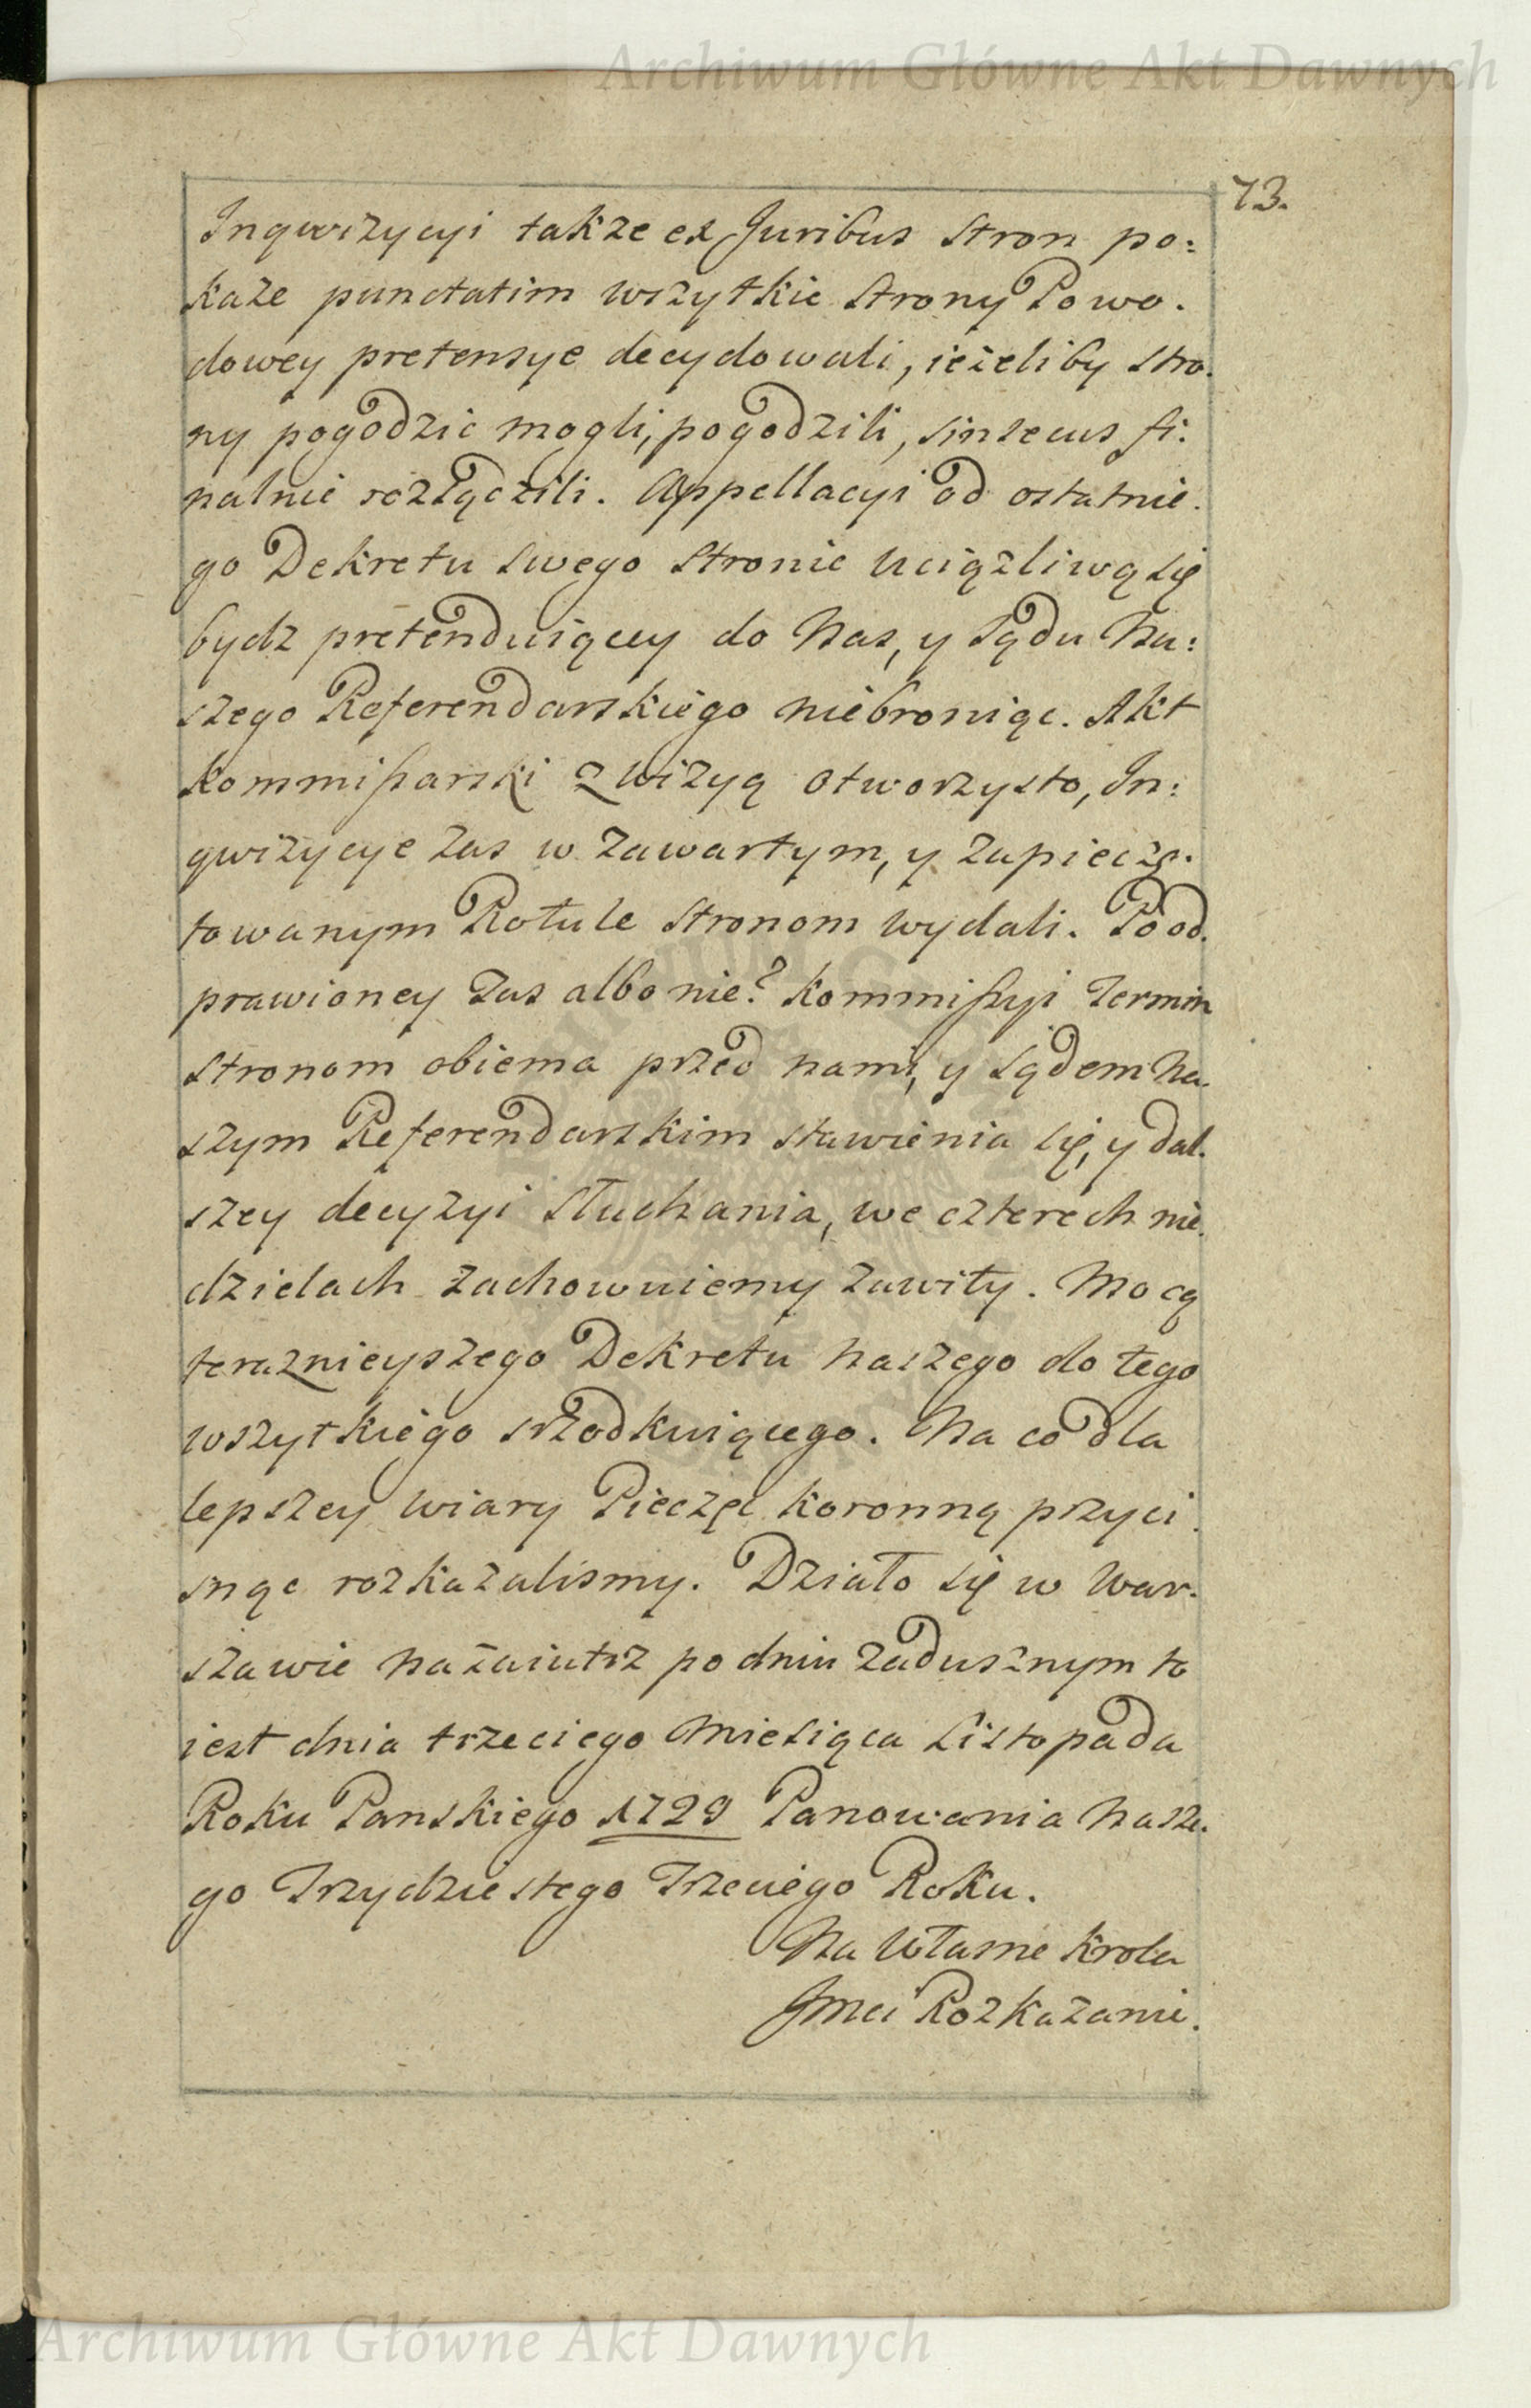 Archiwum Główne Akt Dawnych
73.
Inqwizycyi takze ex Juribus stron po:
kaze punctatim wszytkie strony Powo.
dowey pretensye decydowali, ieżeliby stro.
ny pogodzic mogli, pogodzili, sin secus fi:
nalnie rozłączili. Appellacyi od ostatnie.
go Dekretu swego stronie uciązliwą się
bydz pretenduiącey do Nas, y Sądu Na:
szego Referendarskiego niebroniąc. Akt
Kommissarski z wizyą otworzysto, In:
qwizycye zas w zawartym, y zapieczę.
towanym Rotule stronom wydali. Po od.
prawioney zas albo nie? Kommissyi Termin
stronom obiema przed nami, y Sądem Na.
szym Referendarskim stawienia się, y dal.
szey decyzyi słuchania, we czterech nie.
dzielach zachowuiemy zawity. Mocą
teraznieyszego Dekretu Naszego do tego
wszytkiego srzodkuiącego. Na co dla
lepszey wiary Pieczęć Koronną przyci.
snąc rozkazalismy. Działo się w War.
szawie nazaiutrz po dniu zadusznym to
iest dnia trzeciego Miesiąca Listopada
Roku Panskiego 1729 Panowania Nasze.
go Trzydziestego Trzeciego Roku.
Na Własne Krola
Jmci Rozkazanie.
Archiwum Główne Akt Dawnych